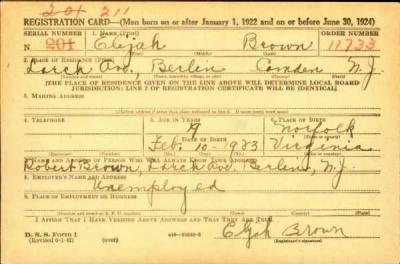 201 211
REGISTRATION CARD—(Men born on or after January 1, 1922 and on or before June 30, 1924)
SERIAL NUMBER 1. NAME (Print) ORDER NUMBER
N 201 Elijah Brown 11733
(First) (Middle) (Last)
2. PLACE OF RESIDENCE (Print)
Larch Ave., Berlin Camden N.J.
[THE PLACE OF RESIDENCE GIVEN ON THE LINE ABOVE WILL DETERMINE LOCAL BOARD
JURISDICTION; LINE 2 OF REGISTRATION CERTIFICATE WILL BE IDENTICAL]
3. MAILING ADDRESS
4. TELEPHONE 5. AGE IN YEARS 6. PLACE OF BIRTH
19 Norfolk
DATE OF BIRTH
Feb. 10-1923 Virginia
7. NAME AND ADDRESS OF PERSON WHO WILL ALWAYS KNOW YOUR ADDRESS
Robert Brown, Larch Ave. Berlin, N.J.
8. EMPLOYER'S NAME AND ADDRESS
Unemployed
9. PLACE OF EMPLOYMENT OR BUSINESS
I AFFIRM THAT I HAVE VERIFIED ABOVE ANSWERS AND THAT THEY ARE TRUE.
D. S. S. Form 1
(Revised 6-1-42) (over)
Elijah Brown
(Registrant's signature)